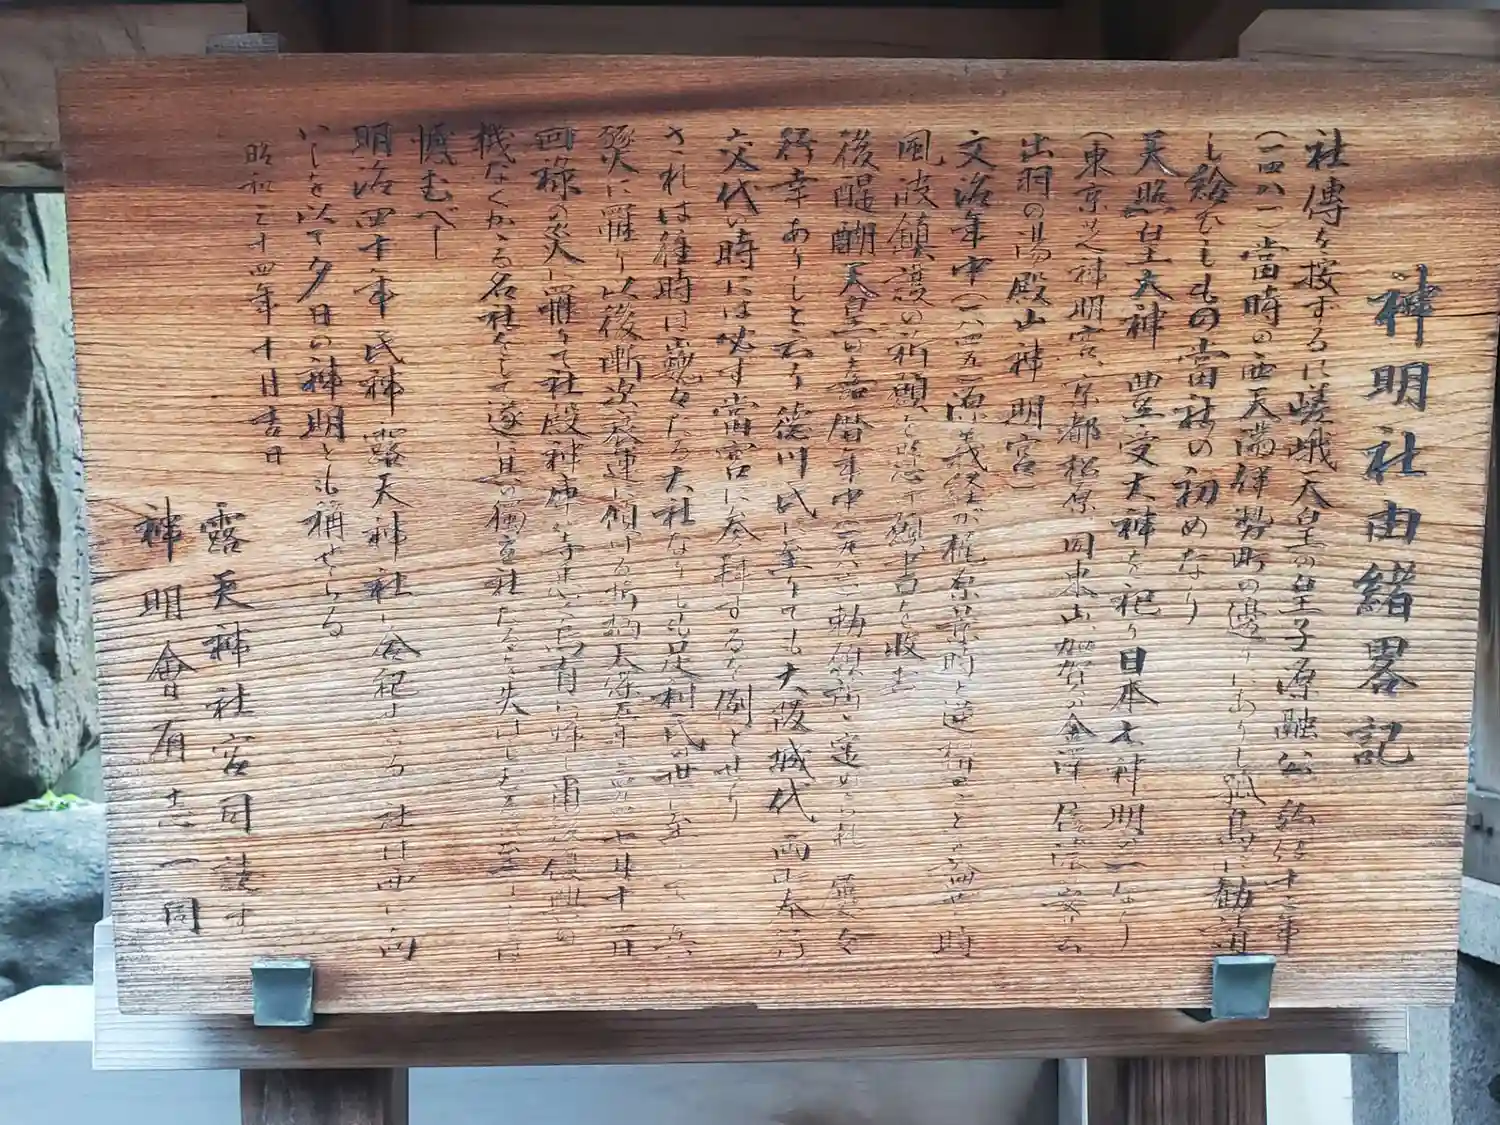 神明社由緒畧記
社傳を按ずるに嵯峨天皇の皇子源融公 弘仁十二年
(一四八一)當時の西天満伊勢町の邊りにありし孤島に勧請
し給ひしもの當社の初めなり
天照皇大神 豊受大神を祀り日本七神明の一なり
(東京芝神明宮、京都松原 同東山、加賀の金澤、信濃 安曇
出羽の湯殿山神明宮)
文治年中(一八四五)源義経が梶原景時と逆櫓のことを論ぜし時
風波鎮護の祈願を 願書を收む
後醍醐天皇の 暦年中 勅願所に定められ 屢々
行幸ありしと云う 徳川氏に至りても大阪城代 両町奉行
交代の時には必ず當宮に参拜するを例とせり
されば往時は巍々たる大社なりしも足利氏の世に至 兵
燹に罹り以後漸次衰運に傾ける折柄天保五年 七月十一日
回禄の災に罹りて社殿神庫 烏有に帰し 復興の
機なくかゝる名社をして遂に其の獨立社たるを失はしむるに至りしは
慨むべし
明治四十年氏神露天神社に合祀する 社は西に向
いしを以て夕日の神明とも稱せらる
昭和三十四年十月吉日
露天神社宮司誌す
神明會有志一同